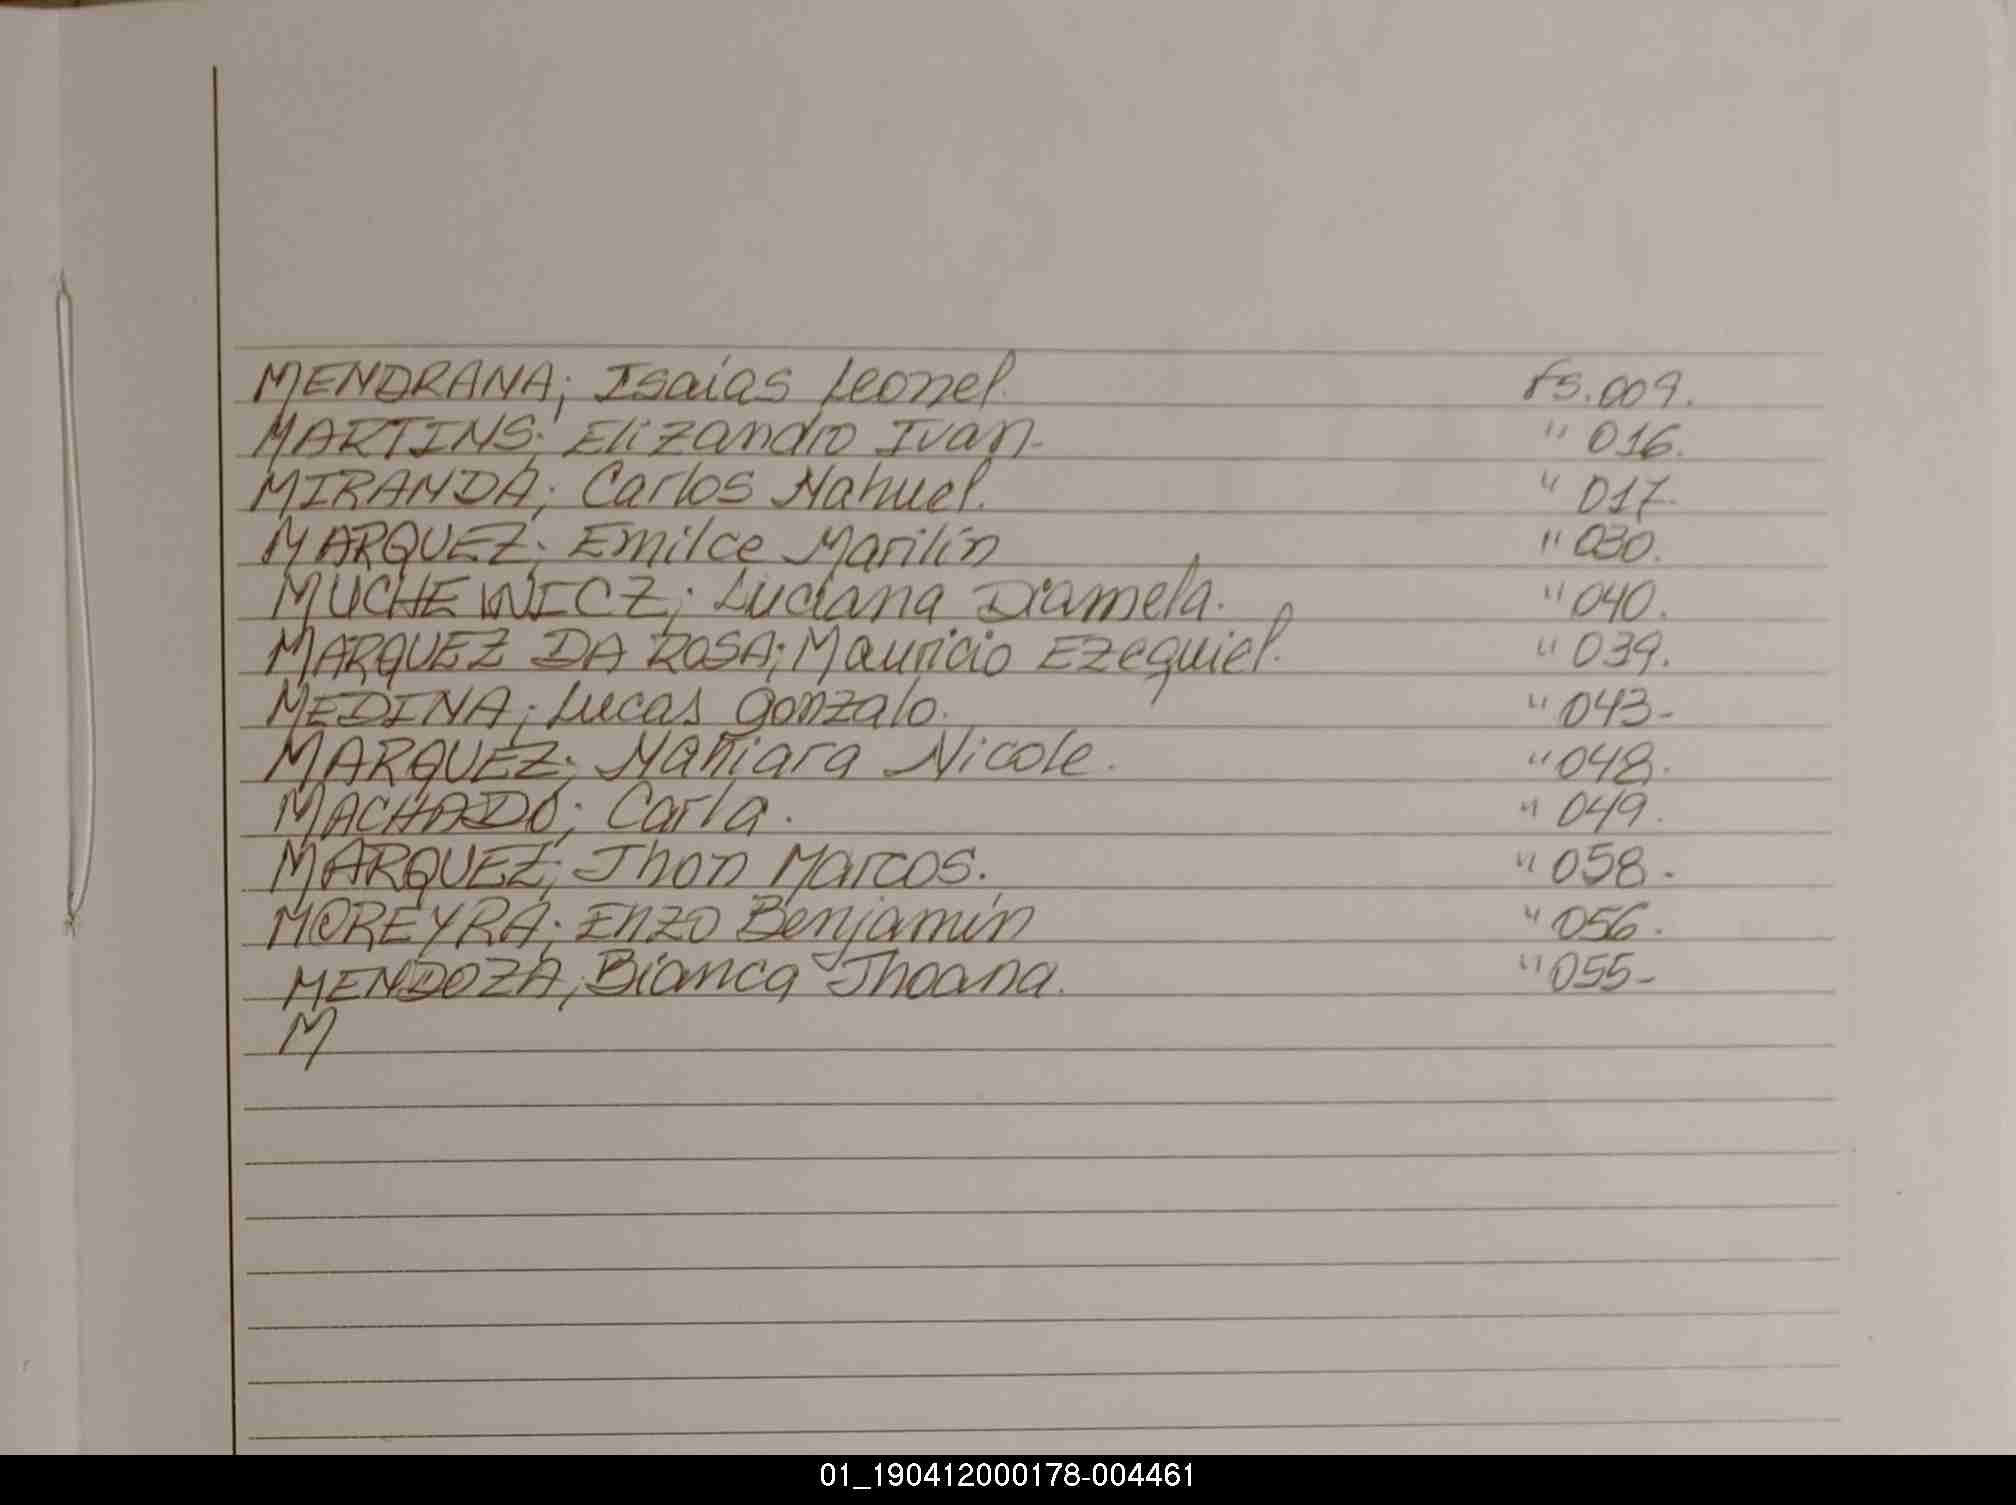 MENDRANA; Isaías Leonel. fs. 009.
MARTINS; Elizandro Ivan. " 016.
MIRANDA; Carlos Nahuel. " 017.
MARQUEZ; Emilce Marilín " 030.
MUCHEWICZ; Luciana Diamela. " 040.
MARQUEZ DA ROSA; Mauricio Ezequiel. " 039.
MEDINA; Lucas Gonzalo. " 043-
MARQUEZ; Nicole. " 048.
MACHADO; Carla. " 049.
MARQUEZ; Jhon Marcos. " 058.
MOREYRA; Enzo Benjamín " 056.
MENDOZA; Bianca Jhoana. " 055-
M
01_190412000178-004461